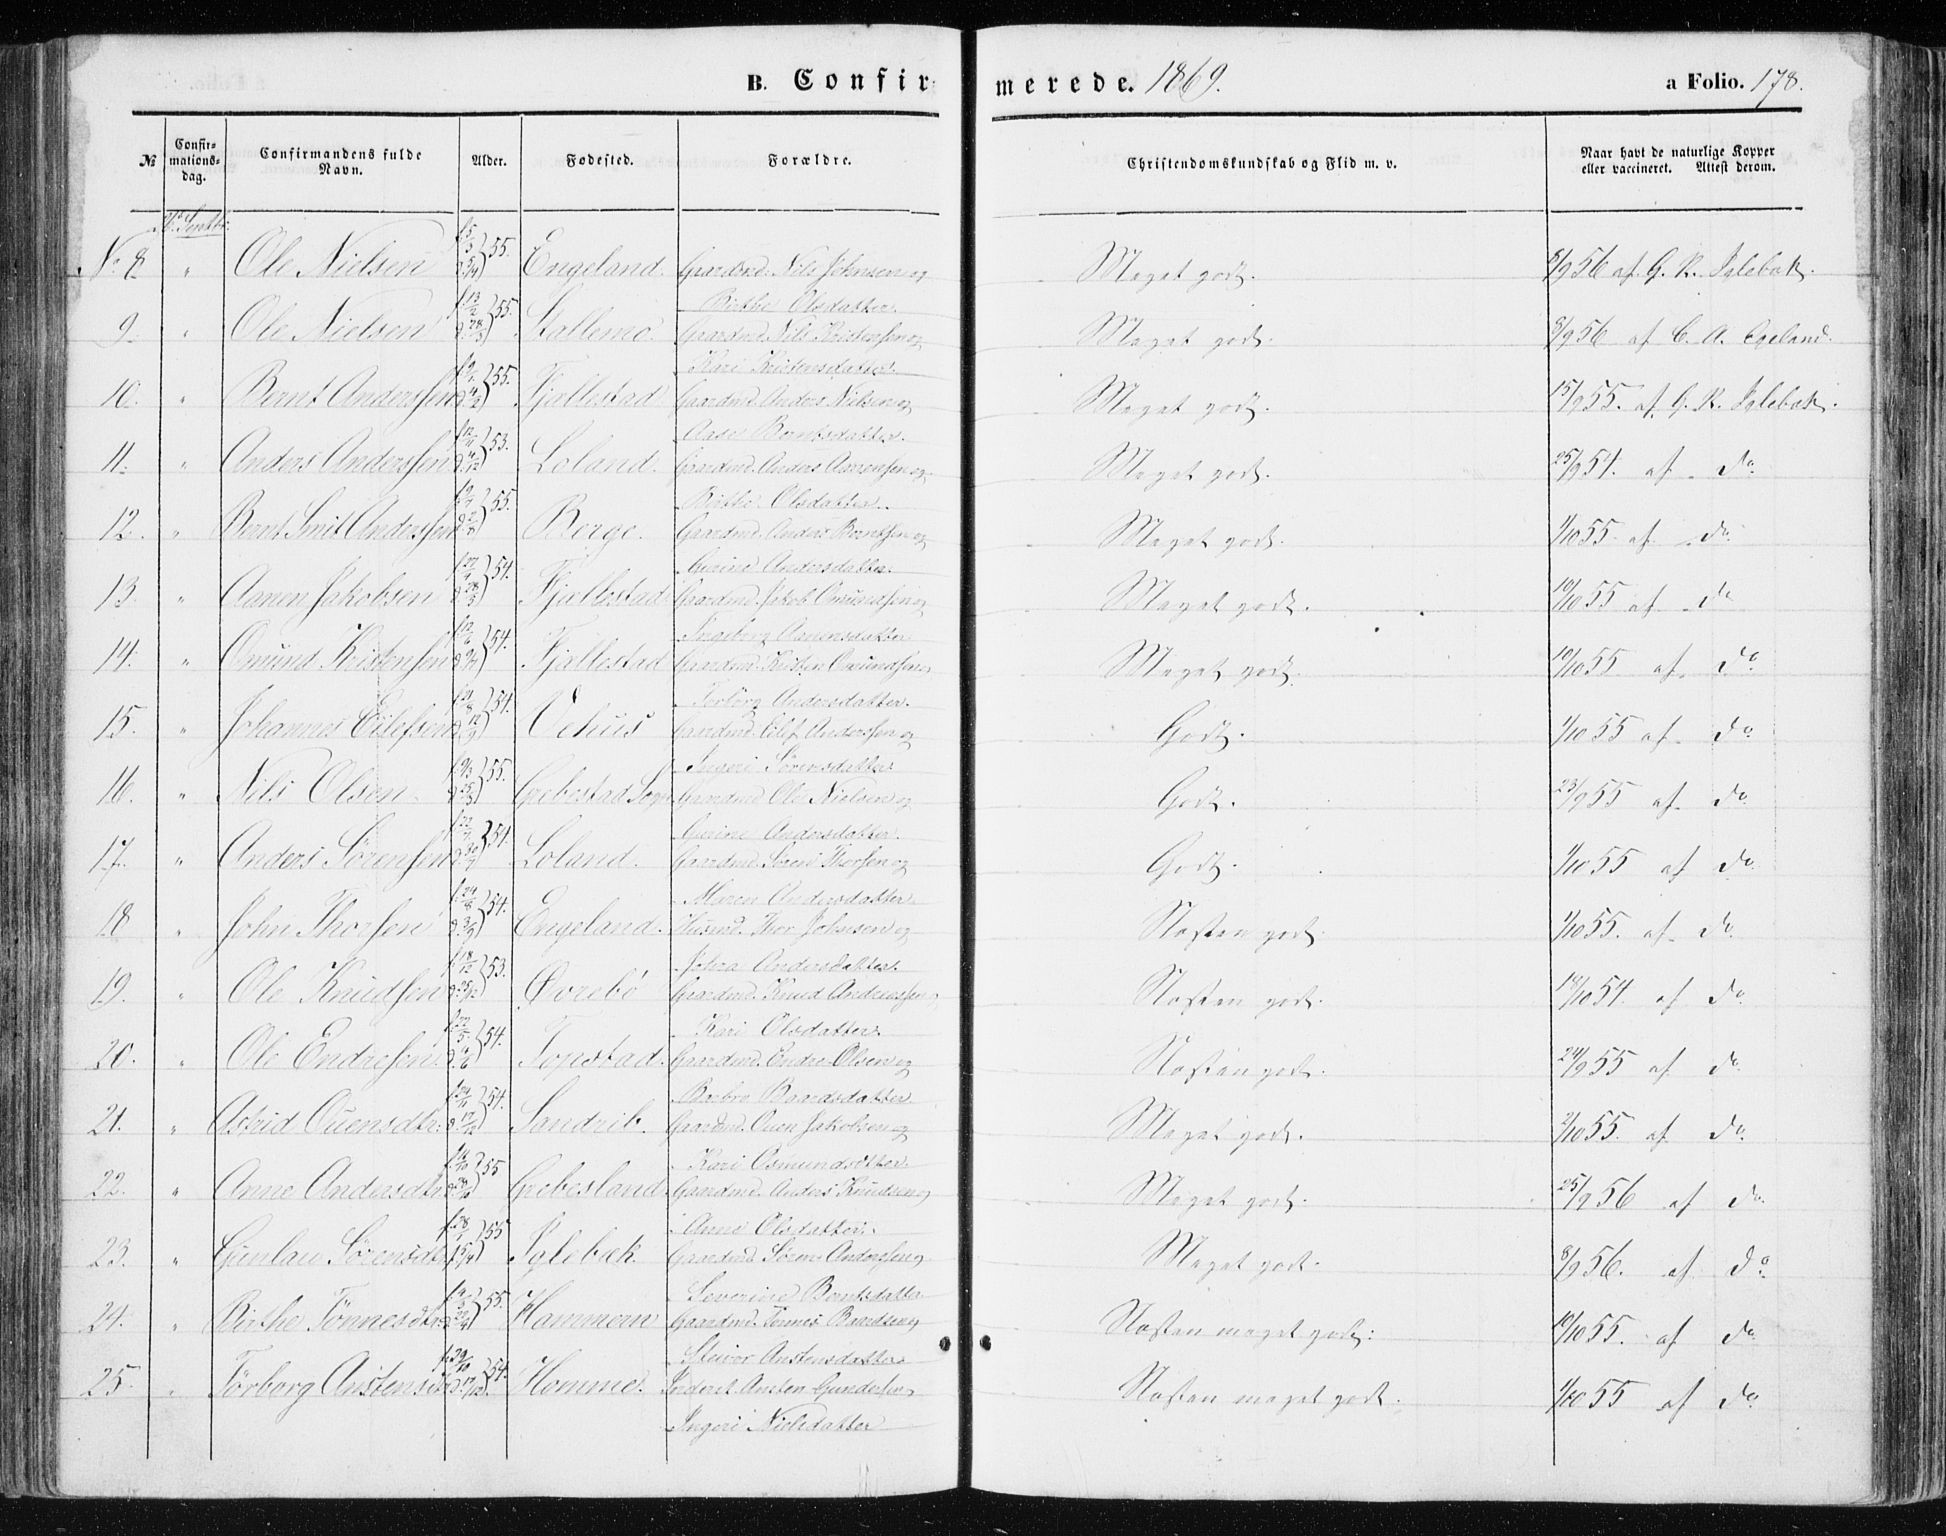 B. Confirmerede. 1869.
a Folio. 178.
№
Confirmationsdag.
Confirmandens fulde Navn.
Alder.
Fødested.
Forældre.
Christendomskundskab og Flid m. v.
Naar havt de naturlige Kopper eller vaccineret. Attest derom.
26. Septbr.
No 8 " Ole Nielsen 55. Engeland. Gaardmd. Nils Johnsen og Meget godt. 8/9 56 af G. K. Iglebæk.
Birthe Olsdatter.
9. " Ole Nielsen 55. Stallemo. Gaardmd. Nils Kristensen og Meget godt. 8/9 56 af C. A. Egeland.
Kari Kristensdatter.
10. " Bernt Anderssen 55. Fjellestad Gaardmd. Anders Nilsen og Meget godt. 15/9 55. af G. K. Iglebæk.
Aase Berntsdatter.
11. " Anders Anderssen 53. Loland. Gaardmd. Anders Aanensen og Meget godt. 25/9 54. af do
Birthe Olsdatter.
12. " Bernt Smit Anderssen 55. Berge. Gaardmd. Anders Berntsen og Meget godt. 1/10 55 af do
Gurine Andersdatter.
13. " Aanen Jakobsen 54. Fjellestad Gaardmd. Jakob Omundsen og Meget godt. 10/10 55 af do
Ingeborg Aanensdatter
14. " Omund Kristensen 54. Fjellestad Gaardmd. Kristen Omundsen og Meget godt. 10/10 55 af do
Torborg Andersdatter.
15. " Johannes Eilefsen 54. Vehus Gaardmd. Eilef Anderssen og Godt. 1/10 55 af do
Ingeri Sørensdatter
16. " Nils Olsen 55. Grebestad Sogn Gaardmd. Ole Nielsen og Godt. 23/9 55 af do
Gurine Andersdatter.
17. " Anders Sørensen 54. Loland. Gaardmd. Søren Thorsen og Godt. 1/10 55 af do
Maren Andersdatter
18 " John Thorsen 54. Engeland. Husmd. Thor Johnsen og Næsten godt. 1/10 55. af do
Johra Andersdatter.
19. " Ole Knudsen 53. Øvrebø Gaardmd. Knud Anderssen og Næsten godt. 18/10 54. af do
Kari Olsdatter.
20. " Ole Endresen 54. Topstad. Gaardmd. Endre Olsen og Næsten godt. 24/9 55 af do
Barbro Baardsdatter
21. " Astrid Ouensdtr. 54. Sandrib. Gaardmd. Ouen Jakobsen og Meget godt. 2/10 55. af do
Kari Osmundsdtter.
22. " Anne Andersdtr 55 Grebesland Gaardmd. Anders Knudsen og Meget godt. 25/9 56 af do
Anne Olsdatter.
23. " Gunlau Sørensdtr 55 Iglebæk Gaardmd. Søren Anderssen og Meget godt. 8/9 56. af do
Severine Berntsdatter
24. " Birthe Tønnesdtr. 55. Hammern Gaardmd. Tønnes Baardsen og Næsten meget godt. 10/10 55. af do
Steivor Anstensdatter
25. " Torborg Anstensdtr 54. Homme. Inderst Ansten Gundersen og Næsten meget godt. 1/10 55 af do
Ingeri Nielsdatter